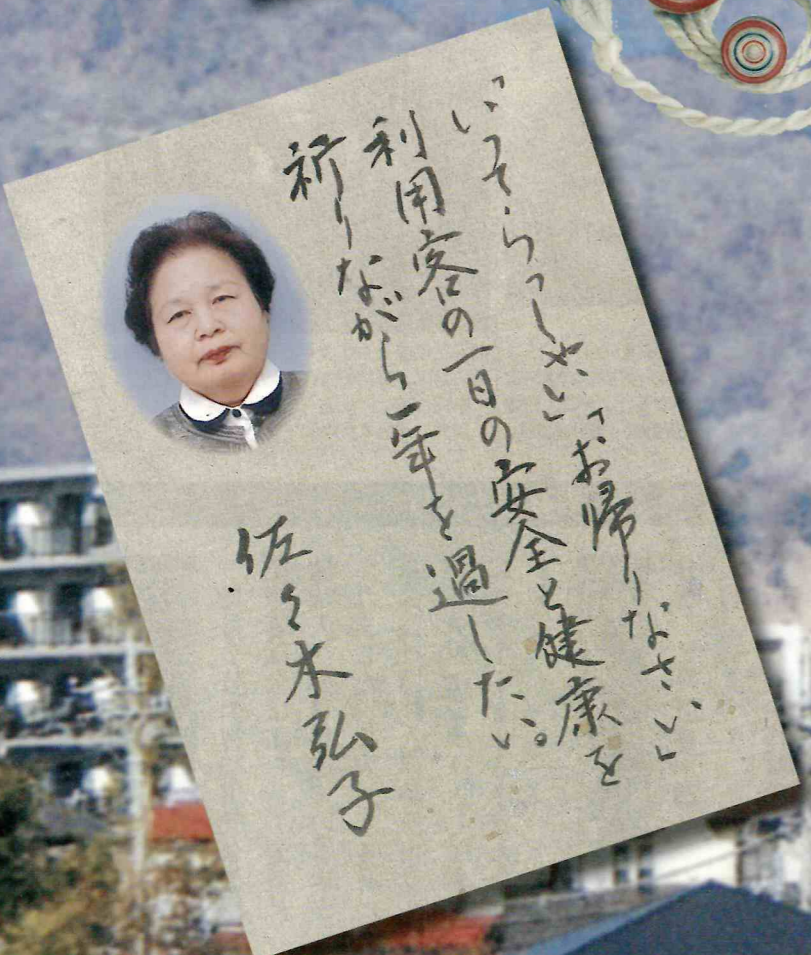 「いってらっしゃい」「お帰りなさい」
利用客の一日の安全と健康を
祈りながら一年を過したい。
佐々木弘子